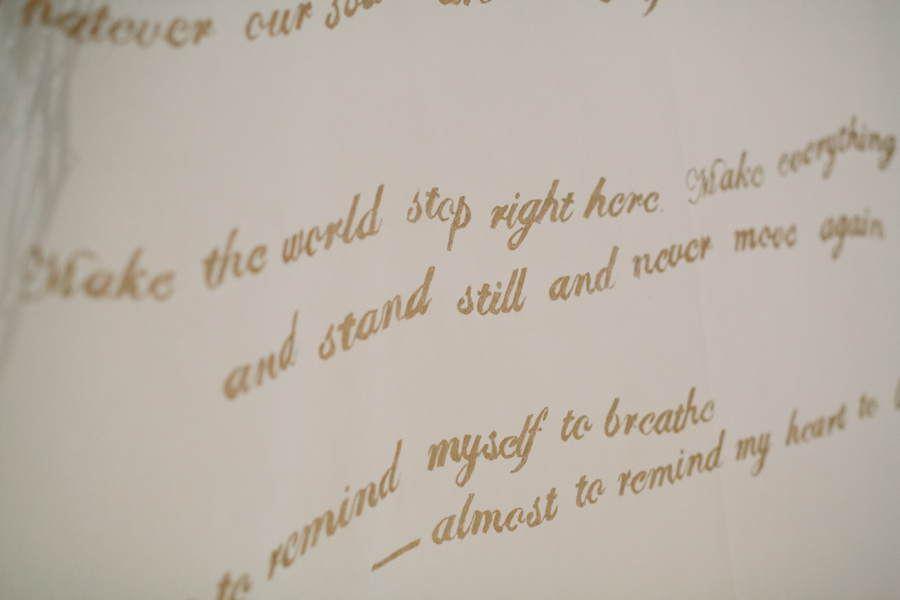 hatever our sou
Make the world stop right here. Make everything
and stand still and never move again
to remind myself to breathe
— almost to remind my heart to